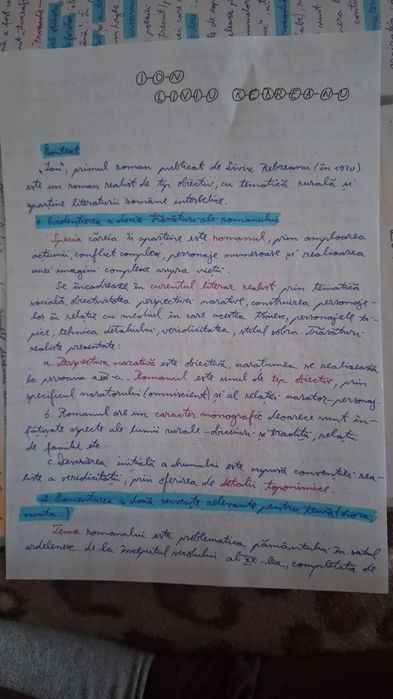 ION
LIVIU REBREANU
Context
"Ion", primul roman publicat de Liviu Rebreanu (în 1920)
este un roman realist de tip obiectiv, cu tematică rurală și
aparține literaturii române interbelice.
1. Evidențierea a două trăsături ale romanului
Specia căreia îi aparține este romanul, prin amploarea
acțiunii, conflict complex, personaje numeroase și realizarea
unei imagini complexe asupra vieții.
Se încadrează în curentul literar realist prin tematică
socială, obiectivitatea perspectivei narative, construirea personaje-
lor în relație cu mediul în care acestea trăiesc, personajele ti-
pice, tehnica detaliului, veridicitatea, stilul sobru. Trăsături
realiste prezentate:
a. Perspectiva narativă este obiectivă, narațiunea se realizează
la persoana a III-a. Romanul este unul de tip obiectiv, prin
specificul naratorului (omniscient) și al relației narator-personaj.
b. Romanul are un caracter monografic deoarece sunt în-
fățișate aspecte ale lumii rurale - obiceiuri și tradiții, relații
de familie etc.
c. Descrierea inițială a drumului este supusă convenției rea-
liste a veridicității, prin oferirea de detalii toponimice.
2. Comentarea a două secvențe relevante pentru temă (hora,
nunta...)
Tema romanului este problematica pământului în satul
ardelenesc de la începutul secolului al XX-lea, completată de